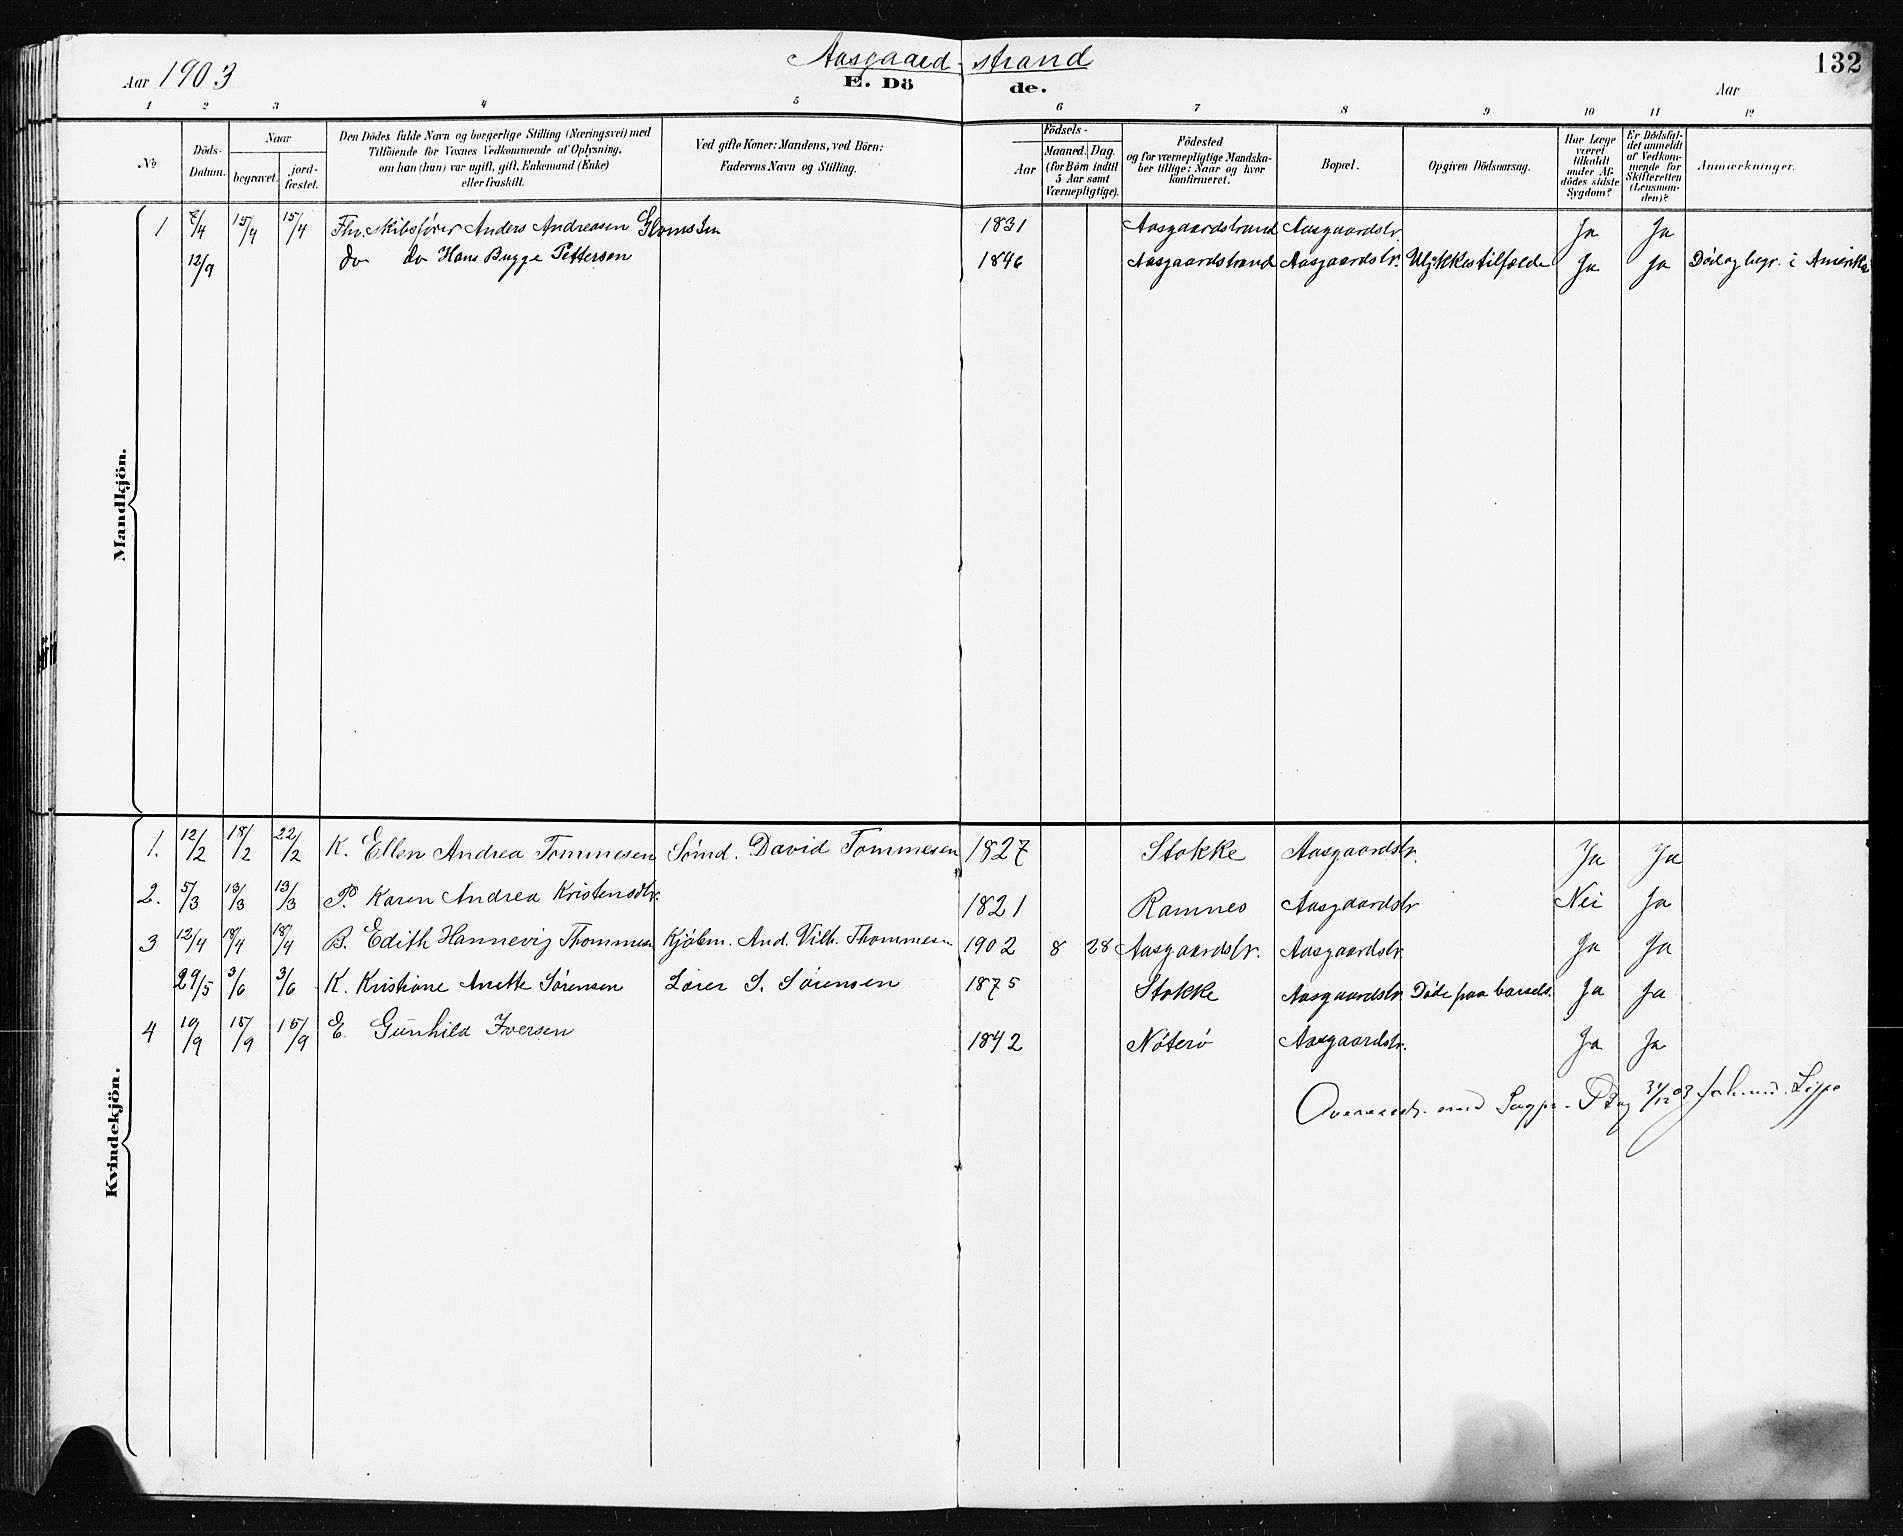 Aasgaard strand
132
Aar 1903
E. Dö de.
Aar
1 2 3 4 5 6 7 8 9 10 11 12
No
Döds-Datum.
Naar
begravet.
jord-fæstet.
Den Dödes fulde Navn og borgerlige Stilling (Næringsvei) med
Tilföiende for Voxnes Vedkommende af Oplysning,
om han (hun) var ugift, gift, Enkemand (Enke)
eller fraskilt.
Ved gifte Koner: Mandens, ved Börn:
Faderens Navn og Stilling.
Födsels-
Aar
Maaned. Dag.
(for Börn indtil
5 Aar samt
Værnepligtige).
Födested
og for værnepligtige Mandska-
ber tillige: Naar og hvor
konfirmeret.
Bopæl.
Opgiven Dödsaarsag.
Har Læge
været
tilkaldt
under Af-
dödes sidste
Sygdom?
Er Dödsfal-
det anmeldt
af Vedkom-
mende for
Skifteretten
(Lensman-
den)?
Anmærkninger.
Mandkjön.
1 7/4 15/4 15/4 Fhv. Skibsfører Anders Andreasen Glomsten 1831 Aasgaardstrand Aasgaardstr. Ja Ja
12/9 do do Hans Bugge Pettersen 1846 Aasgaardstrand Aasgaardstr. Ulykkestilfælde Ja Ja Död og begr. i Amerika
Kvindekjön.
1. 12/2 18/2 22/2 K. Ellen Andrea Tommesen Sömd. David Tommesen 1827 Stokke Aasgaardstr. Ja Ja
2. 5/3 13/3 13/3 P. Karen Andrea Kristensdtr. 1821 Ramnes Aasgaardstr Nei Ja
3 12/4 18/4 18/4 B. Edith Hannevig Thommesen Kjöbm. And. Vilh. Thommesen 1902 8 28 Aasgaardstr. Aasgaardstr. Ja Ja
29/5 3/6 3/6 K. Kristiane Anette Sörensen S. Sörensen 1875 Stokke Aasgaardstr Döde paa barsels. Ja Ja
4 10/9 15/9 15/9 E. Gunhild Iversen 1842 Nöterö Aasgaardstr. Ja Ja
31/12 03